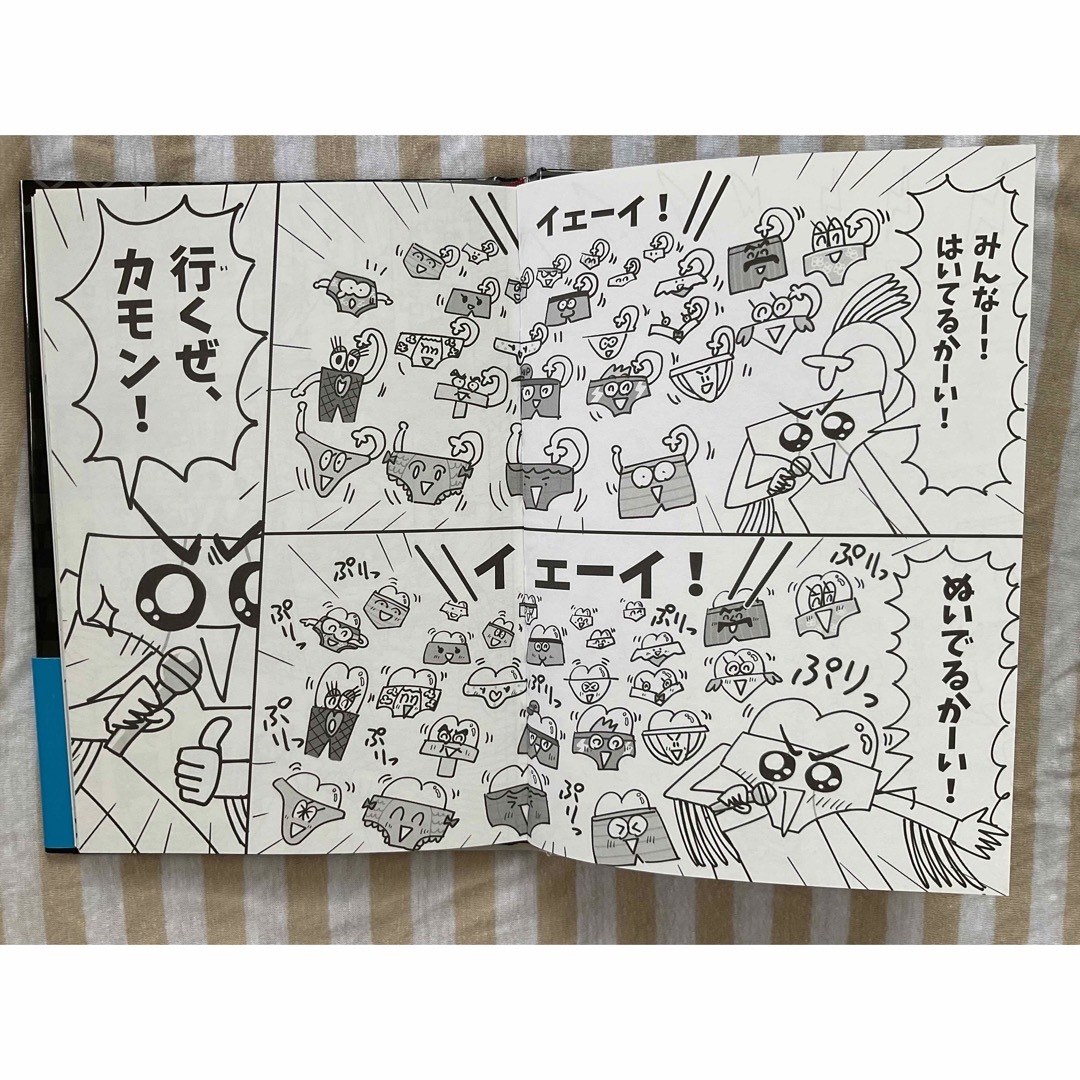 みんなー！
はいてるかーい！
イェーイ！
ぬいでるかーい！
イェーイ！
ぷりっ
ぷりっ
ぷりっ
ぷりっ
ぷりっ
ぷりっ
ぷりっ
ぷりっ
ぷりっ
行くぜ、
カモン！